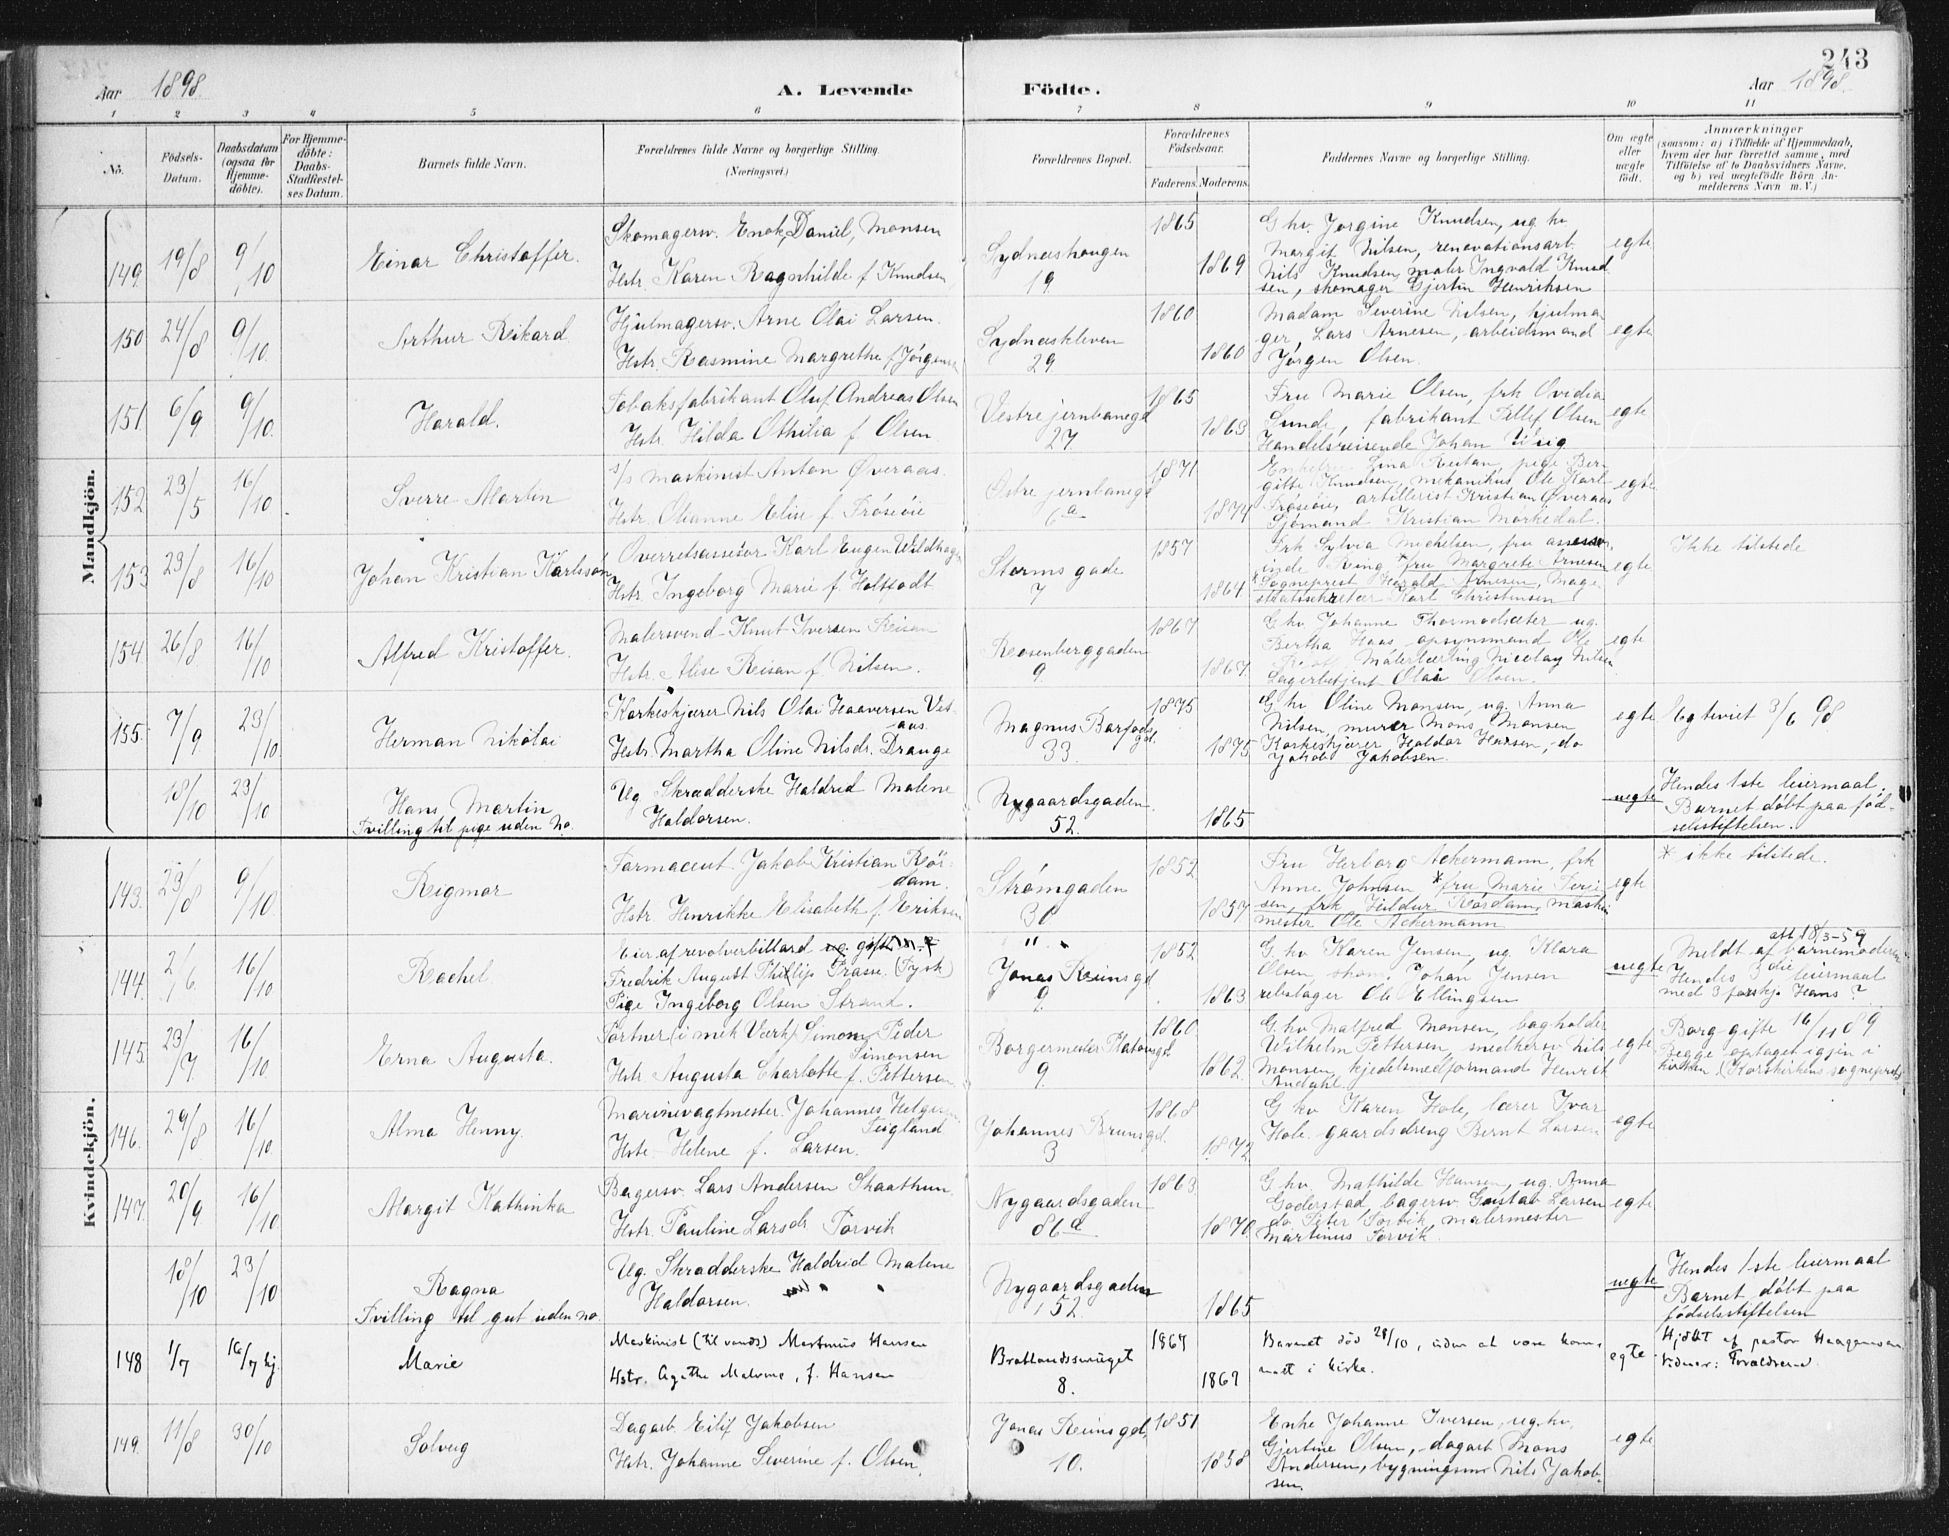 243
Aar 1898.
A. Levende Födte.
Aar 1898.
1 2 3 4 5 6 7 8 9 10 11
No.
Födsels-Datum.
Daabsdatum (ogsaa for Hjemme-döbte).
For Hjemme-döbte: Daabs-Stadfæstel-ses Datum.
Barnets fulde Navn.
Forældrenes fulde Navne og borgerlige Stilling.
(Næringsvei.)
Forældrenes Bopæl.
Forældrenes Födselsaar.
Faderens. Moderens.
Faddernes Navne og borgerlige Stilling.
Om ægte eller uægte födt.
Anmærkninger
(saasom: a) i Tilfælde af Hjemmedaab,
hvem der har forrettet samme, med
Tilföielse af to Daabsvidners Navne,
og b) ved uægtefödte Börn An-
melderens Navn m. V.)
Mandkjön.
149. 19/8 9/10
Einar Christoffer.
Skomagersv. Enok, Daniel, Monsen
Hstr. Karen Ragnhilde f Knudsen
Sydneshougen
19.
1865
1869
G hv. Jorgine Knudsen, ug. hv
Margit Nilsen, renovationsarb.
Nils Knudsen, maler Ingvald Knud
sen, skomager Gjertin Henriksen
egte
150. 24/8 9/10
Arthur Rikard
Hjulmagersv. Arne Olai Larsen.
Hstr. Rasmine Margrethe f Jørgensen
Sydneskleven
29
1860
1860
Madam Severine Nilsen, hjulma
ger, Lars Arnesen, arbeidsmand
Jørgen Olsen.
egte
151. 6/9 9/10
Harald.
Tobaksfabrikant Oluf Andreas Olsen
Hstr. Hilda Othilia f. Olsen
Vestre jernbanegd
27
1865
1863
Fru Marie Olsen, frk Ovidia
Sunde, fabrikant Detlef Olsen
Handelsreisende Johan
egte
152. 23/5 16/10
Sverre Martin
s/s maskinist Anton Øveraas.
Hstr. Olianne Elise f. Frøsøie
Østre jernbanegd
6a
1871
1874
Lina pige Ber-
gitte Knudsen, mekanikus Ole Karl
Frøsøie, artillerist Kristian Øveraas
Sjømand Kristian Mørkedal.
egte
153 23/8 16/10
Johan Kristian Karlsson
Overretsassessor Karl Eugen Wildhagen
Hstr. Ingeborg Marie f. Holfeodt
Storms gade
7
1857
1864
Frk Sylvia Michelsen, fru assessor
inde Ring *fru Margrete Arnesen
*Sogneprest Harald Arnesen, Mage-
stratssekretær Karl Christensen
egte
Ikke tilstede
154. 26/8. 16/10
Alfred Kristoffer.
Malersvend Knut Iversen Reisan
Hstr. Alise Reisan f. Nilsen.
Rosenberggaden
9.
1867
1867.
G. hv Johanne Thormodsæter ug.
Bertha Haas, opsynsmand Ole
Malerlærling Nicolay Nilsen
Lagerbetjent Olai Olsen.
egte
155. 7/9. 23/10.
Herman Nikolai
Korkeskjærer Nils Olai Haaversen Vet-
aas.
Hstr. Martha Oline Nilsdr. Drange
Magnus Barfods
gd.
33.
1875
1875
G. hv Oline Monsen, ug. Anna
Nilsen, murer Mons Monsen
Korkeskjærer Haldor Hansen, do
Jakob Jakobsen.
egte
Egteviet 3/6 98
18/10 23/10
Hans Martin
Tvilling til pige uden No.
Ug Skrædderske Haldrid Malene
Haldorsen.
Nygaardsgaden
52.
1865
uegte
Hendes 1ste leiermaal.
Barnet døbt paa fød-
selsstiftelsen.
Kvindekjön.
143. 23/8 9/10
Rigmor
Farmaceut Jakob Kristian Rør-
dam.
Hstr Henrikke Elisabeth f. Eriksen
Strømgaden
30
1852
1857
Fru Herborg Ackermann, frk
Anne Johnsen, *fru Marie Iver
sen, frk Hildur Rørdam, maskin
mester Ole Ackermann
egte
* ikke tilstede.
144. 2/6. 16/10
Rachel.
Eier af revolverbillard ug. gift m.
Fredrik August Phillip Prasse. (Tysk)
Pige Ingeborg Olsen Strand.
" "
Jonas Reinsgd
9.
1852
1863
G hv Karen Jensen, ug. Klara
Olsen, skom. Johan Jensen
rebslager Ole Ellingsen
uegte
att 18/3-59
Meldt af barnemoderen
Hendes 3die leiermaal
med 3 forskj. Hans ?
145. 23/7. 16/10
Erna Augusta.
Portner (i mek Værk) Simon Peder
Simonsen
Hstr Augusta Charlotte f. Pettersen.
Borgermester Platousgd.
9.
1860
1862.
G. hv Malfred Monsen, bogholder
Wilhelm Pettersen, smedkersv Nils
Monsen, kjedelsmedformand Henrik
Andahl.
egte
Borg gifte 16/11 89
Begge optaget igjen i
kirken (Korskirkens sogneprest)
146. 29/8 16/10
Alma Henny.
Marinevagtmester Johannes Helgesen
Seigland
Hstr Helene f. Larsen.
Johannes Brunsgd.
3
1868
1872
G hv Karen Hole, lærer Ivar
Hole. gaardsdreng Bernt Larsen
egte
147. 20/9 16/10
Margit Kathinka
Bagersv. Lars Andersen Skaathun
Hstr Pauline Larsdr Torvik
Nygaardsgaden
86a
1863
1870.
G hv. Mathilde Hansen, ug. Anna
Goderstad, bagersv Gustav Larsen
do Peter Torvik, malermester
Martinus Torvik.
egte
18/10 23/10
Ragna
Tvilling til gut uden no.
Ug. Skrædderske Haldrid Malene
Haldorsen.
Nygaardsgaden
52
1865
uegte
Hendes 1ste leiermaal
Barnet døbt paa
fødselsstiftelsen
148 1/7 16/7 hj.
Marie
Maskinist (til vands) Martinus Hansen
Hstr. Agathe Malvine, f. Hansen
Bratlandssmuget
8.
1867
1867
Barnet død 28/10, uden at være kom-
met i kirke.
egte
Hjdøbt af pastor Haagensen.
Vidner: Forældrene.
149. 11/8 30/10
Solveig
Dagarb. Eilif Jakobsen
Hstr. Johanne Severine f. Olsen.
Jonas Reinsgd.
10.
1851
1858
Enke Johanne Iversen, ug. hv.
Gjertine Olsen, dagarb Mons
Andersen, bygningssn Nils Jakob-
sen.
egte